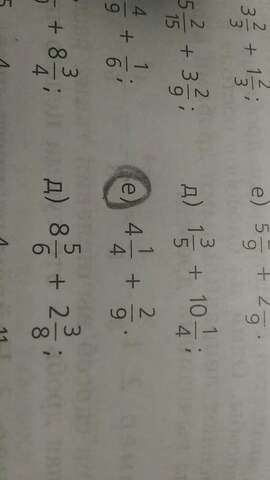 3 2/3 + 1 2/3; е)
5 2/15 + 3 2/9; д) 1 3/5 + 10 1/4;
4/9 + 1/6; е) 4 1/4 + 2/9.
+ 8 3/4; д) 8 5/6 + 2 3/8;